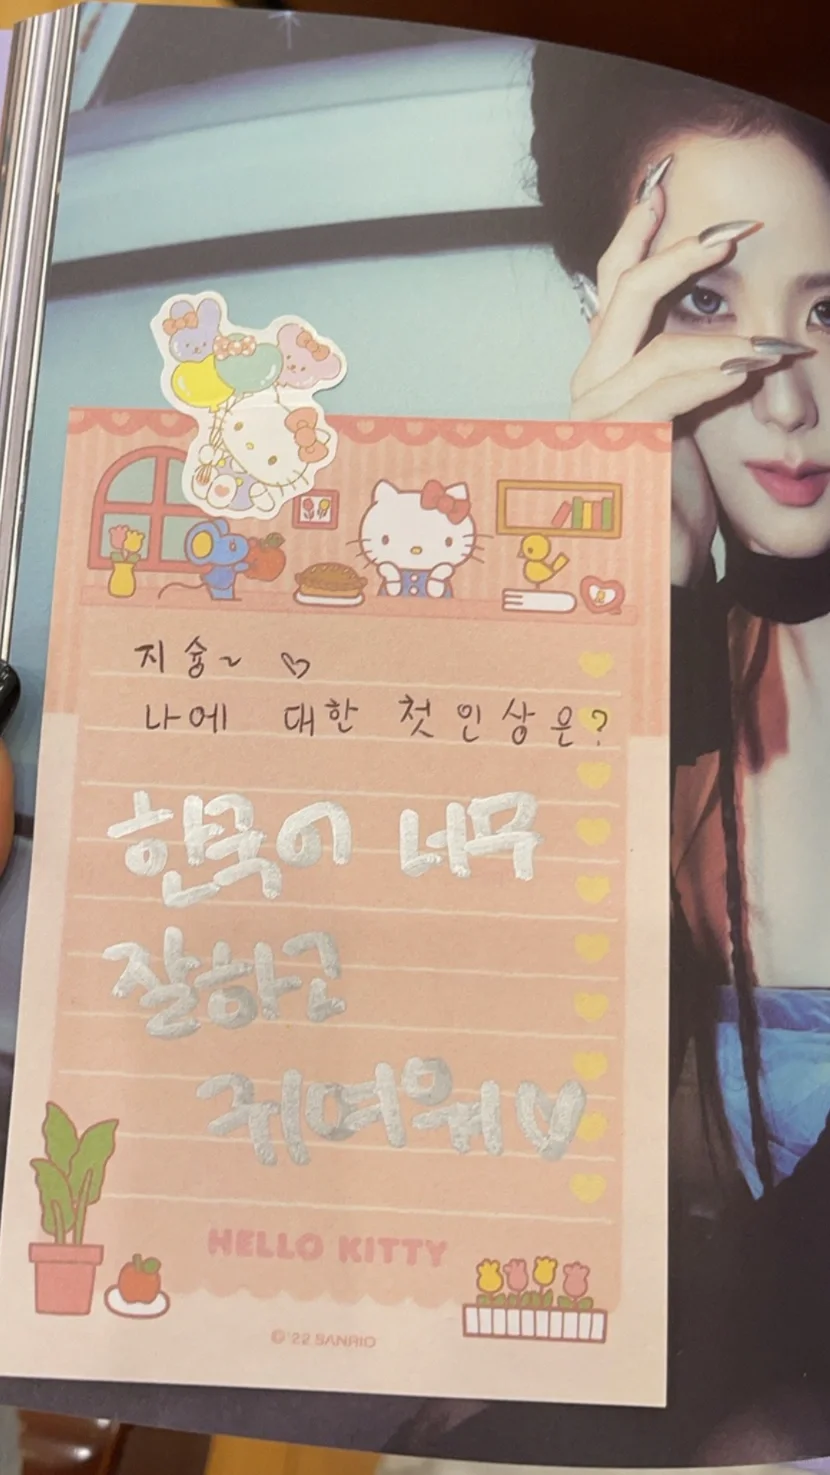 지슝~ ♡
나에 대한 첫인상은?
한국어 너무
잘하고
귀여워♡
HELLO KITTY
© '22 SANRIO